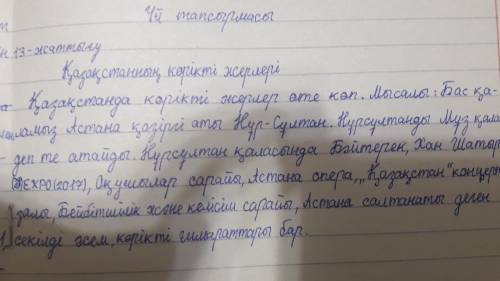 Үй тапсырмасы
13-жаттығу
Қазақстанның көрікті жерлері
Қазақстанда көрікті жерлер өте көп. Мысалы: Бас қа-
ламыз Астана қазіргі аты Нұр-Сұлтан. Нұрсұлтанды Мұз қала
деп те атайды. Нұрсұлтан қаласында Бәйтерек, Хан Шатыр
EXPO(2017), Оқушылар сарайы, Астана опера, „Қазақстан" концерт
залы, Бейбітшілік және келісім сарайы, Астана салтанаты деген
секілде әсем, көрікті ғимараттары бар.